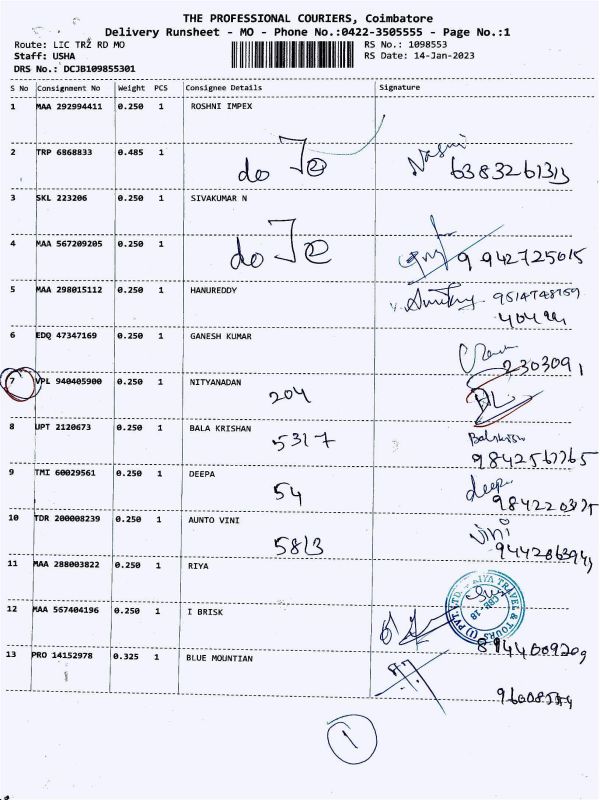 THE PROFESSIONAL COURIERS, Coimbatore
Delivery Runsheet - MO - Phone No.:0422-3505555 - Page No.:1
Route: LIC TRZ RD MO RS No.: 1098553
Staff: USHA RS Date: 14-Jan-2023
DRS No.: DCJB109855301
S No Consignment No Weight PCS Consignee Details Signature
1 MAA 292994411 0.250 1 ROSHNI IMPEX
2 TRP 6868833 0.485 1 do
3 SKL 223206 0.250 1 SIVAKUMAR N
4 MAA 567209205 0.250 1 do 9942725015
5 MAA 298015112 0.250 1 HANUREDDY
6 EDQ 47347169 0.250 1 GANESH KUMAR
7 VPL 940405900 0.250 1 NITYANADAN 204
8 UPT 2120673 0.250 1 BALA KRISHAN 5317
9 TMI 60029561 0.250 1 DEEPA 54 deepa
10 TDR 200008239 0.250 1 AUNTO VINI 5813 vini
11 MAA 288003822 0.250 1 RIYA
12 MAA 567404196 0.250 1 I BRISK
13 PRO 14152978 0.325 1 BLUE MOUNTIAN
1